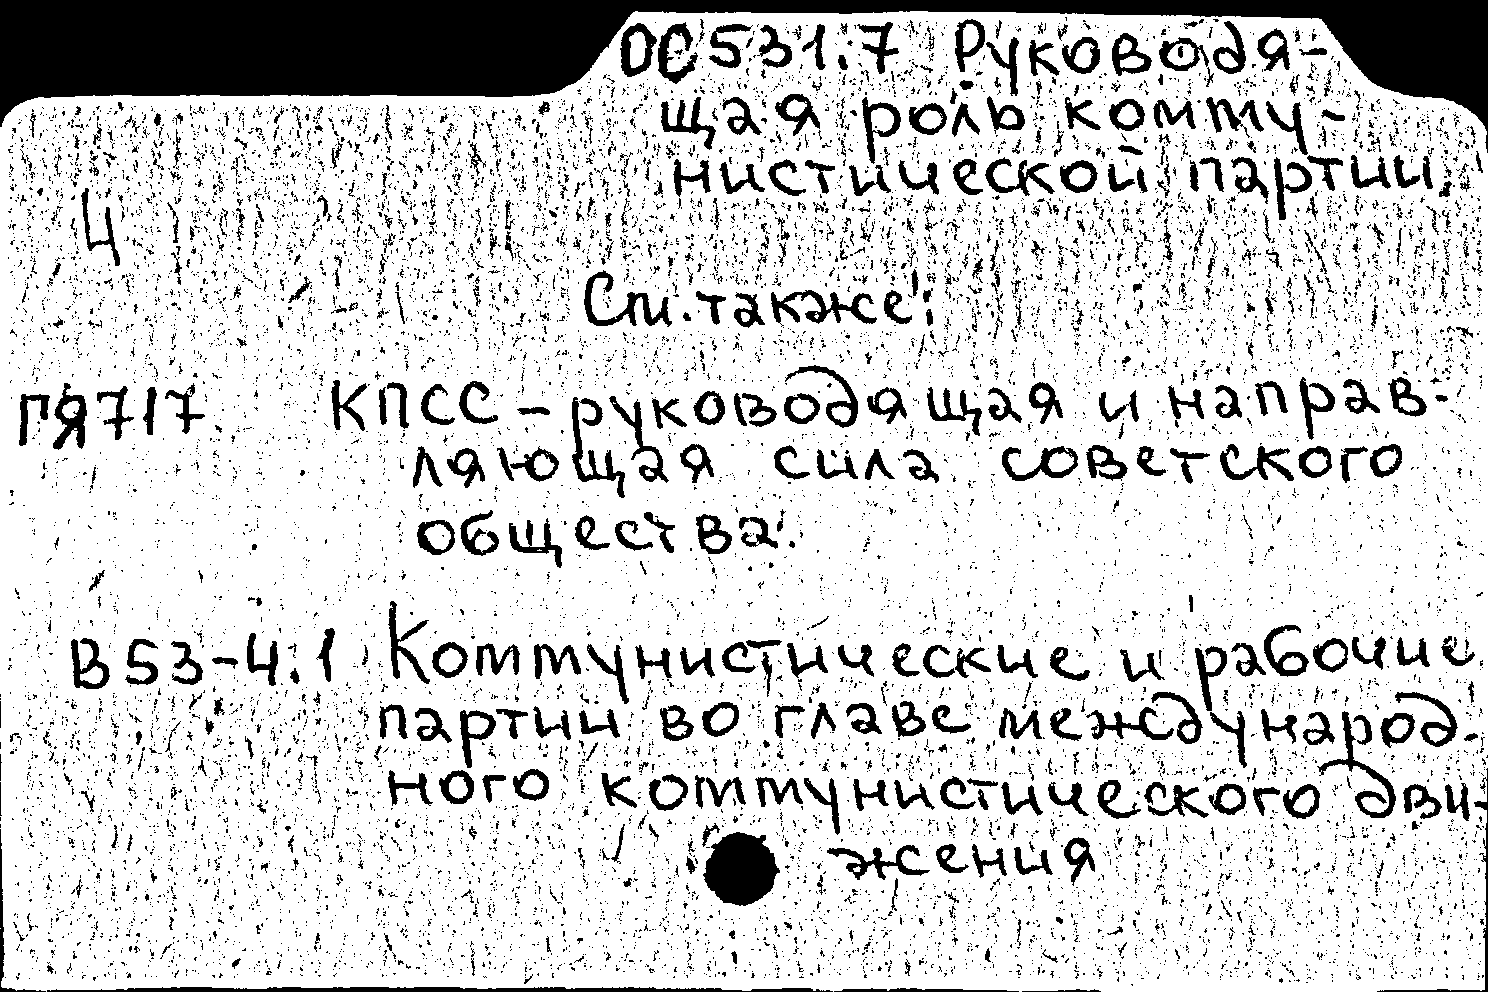 ОС531.7 Руководя-
щая роль комму-
нистической партии.
4
См. также:
ГЯ717 КПСС – руководящая и направ-
ляющая сила советского
общества.
В53-4.1 Коммунистические и рабочие
партии во главе международ-
ного коммунистического дви-
жения